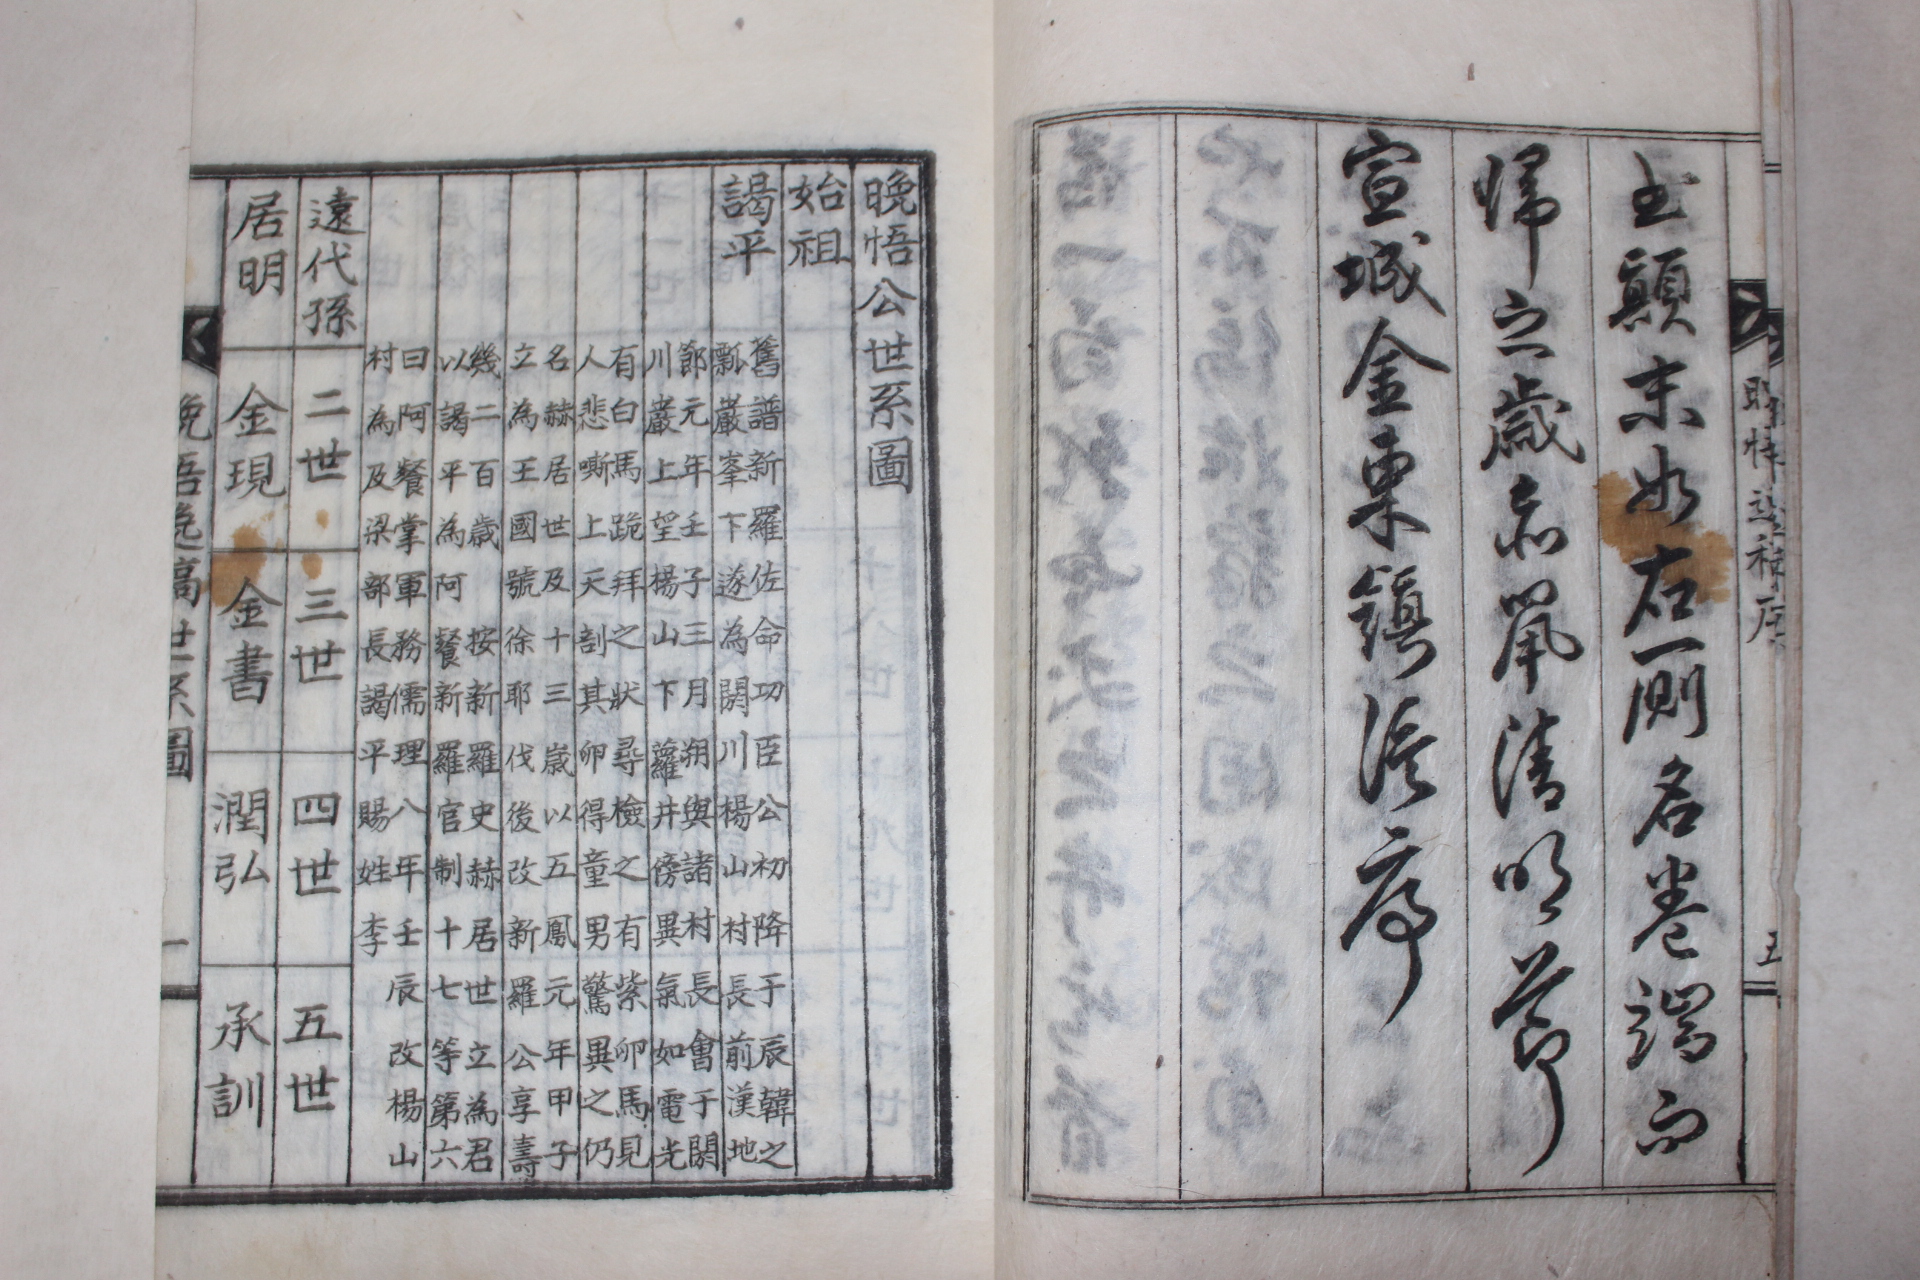 顚末如右一則名卷端而
歸之歲赤鼠淸明節
宣城金東鎭序
五
晩悟公世系圖
始祖
謁平
舊譜新羅佐命功臣公初降于辰韓之
瓢巖峯下遂為閼川楊山村長前漢地
節元年壬子三月朔與諸村長會于閼
川巖上望楊山下蘿井傍異氣如電光
有白馬跪拜之狀尋檢之有紫卵馬見
人悲嘶上天剖其卵得童男驚異之仍
名赫居世及十三歲以五鳳元年甲子
立為王國號徐耶伐後改新羅公享壽
幾二百歲 按新羅史赫居世立為君
以謁平為阿餐新羅官制十七等第六
曰阿餐掌軍務儒理八年壬辰改楊山
村為及梁部長謁平賜姓李
遠代孫 二世 三世 四世 五世
居明 金現 金書 潤弘 承訓
晩悟逸稿世系圖 一